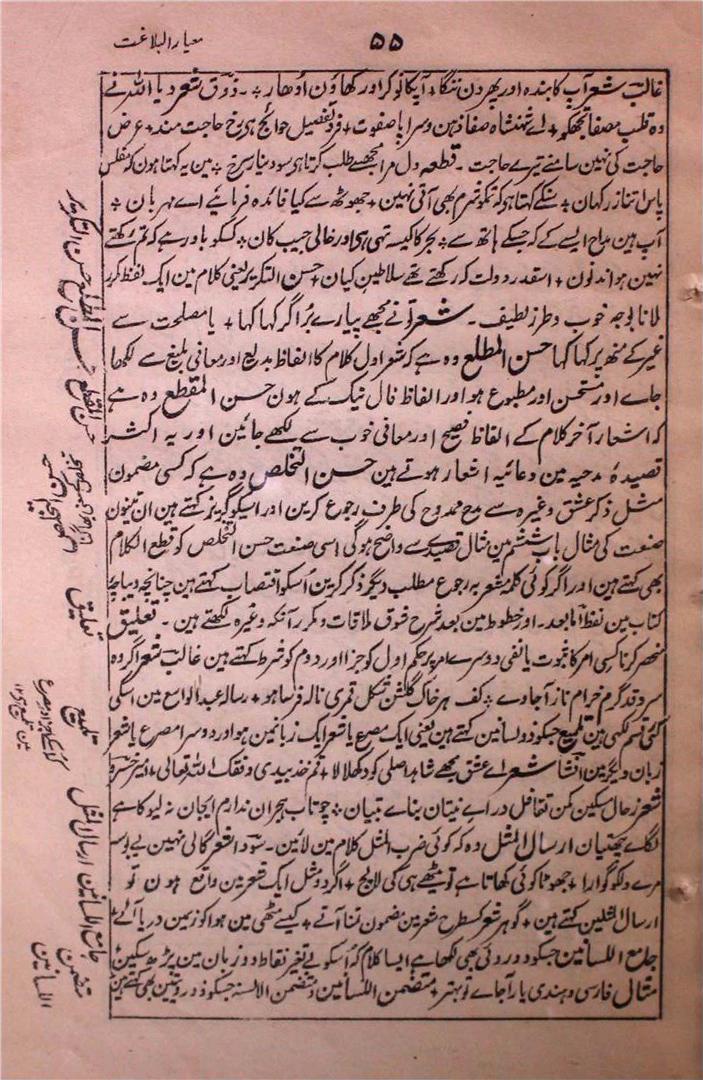 معیار البلاغت
۵۵
غالب شعر آپ کا بندہ اور پھرون ننگا + آپکا نوکر اور کھاؤن اودھار + ۔ ذوق شعر دیا اللہ نے
وہ قلب مصفا تجھکو + اے شہنشاہ صفا ذہن و سراپا صفوت + فرد تفصیل حوائج ہی رخ حاجت مند + عرض
حاجت کی نہین سامنے تیرے حاجت ۔ قطعہ دل مرا مجھسے طلب کرتا ہی سو دینار سرخ + مین یہ کہتا ہون کہ مفلس
پاس اتنا زر کہان + سنکے کہتا ہو کہ تمکو شرم بھی آتی نہین + جھوٹھ سے کیا فائدہ فرمائیے اے مہربان +
آپ ہین مداح ایسے کے کہ جسکے ہاتھ سے + بحر کا کیسہ تہی ہی اور خالی جیب کان + کسکو باور ہے کہ تم رکھتے
نہین ہو اندنون + اسقدر دولت کہ رکھتے تھے سلاطین کیان + حسن التکریر یعنی کلام مین ایک لفظ مکرر
لانا بوجہ خوب و طرز لطیف ۔ شعر تو نے مجھے پیارے برا گر کہا کہا + یا مصلحت سے
غیر کے منھ پر کہا کہا حسن المطلع وہ ہے کہ شعر اول کلام کا الفاظ بدیع اور معانی بلیغ سے لکھا
جاے اور مستحسن اور مطبوع ہو اور الفاظ فال نیک کے ہون حسن المقطع وہ ہے
کہ اشعار آخر کلام کے الفاظ فصیح اور معانی خوب سے لکھے جائین اور یہ اکثر
قصیدۂ مدحیہ مین دعائیہ اشعار ہوتے ہین حسن التخلص وہ ہے کہ کسی مضمون
مثل ذکر عشق وغیرہ سے مدح ممدوح کی طرف رجوع کرین اور اسکو گریز کہتے ہین ان تینون
صنعت کی مثال باب ششم مین مثال قصیدے سے واضح ہوگی اسی صنعت حسن التخلص کو قطع الکلام
بھی کہتے ہین اور اگر کوئی کلمہ مشعر بہ رجوع مطلب دیگر ذکر کرین اسکو اقتضاب کہتے ہین چنانچہ دیباچہ
کتاب مین لفظ اما بعد ۔ اور خطوط مین بعد شرح شوق ملاقات و مکرر آنکہ وغیرہ لکھتے ہین ۔ تعلیق
منحصر کرنا کسی امر کا ثبوت یا نفی دوسرے امر پر حکم اول کو جزا اور دوم کو شرط کہتے ہین غالب شعر اگر وہ
سرو قد گرم خرام ناز آجاوے + کف ہر خاک گلشن شکل قمری نالہ فرسا ہو + رسالہ عبدالواسع مین اسکی
کئی قسم لکھی ہین تلمیع جسکو ذو لسانین کہتے ہین یعنی ایک مصرع یا شعر ایک زبانمین ہو اور دوسرا مصرع یا شعر
زبان دیگر مین انشا شعر اے عشق مجھے شاہد اصلی کو دکھلا لا + قم خذ بیدی وفقک اللہ تعالی + امیر خسرو
شعر ز حال مسکین مکن تغافل دراے نیتان بناے بتیان + چو تاب ہجران ندارم ایجان نہ لیو کاہے
لگاے چھتیان ارسال المثل وہ کہ کوئی ضرب المثل کلام مین لائین ۔ سودا شعر گالی نہین بے بوسہ
مرے دلکو گوارا + جھوٹا کوئی کھاتا ہے تو میٹھے ہی کی لالچ + اگر دو مثل ایک شعر مین واقع ہون تو
ارسال المثلین کہتے ہین + گوہر شعر کسطرح شعر مین مضمون تننا آئے + کیسے مٹھی مین ہوا کوزیمین دریا آئے +
جامع اللسانین جسکو دو روئی بھی لکھا ہے ایسا کلام کہ اسکو بے تغیر نقاط دو زبان مین پڑھ سکین
مثال فارسی و ہندی یار آجاے تو بہتر + متضمن اللسانین و متضمن الالسنہ جسکو ذو رویتین بھی کہتے ہین
حسن التکریر
حسن المطلع
حسن المقطع
تعلیق
تلمیع
ارسال المثل
جامع اللسانین
متضمن
اللسانین